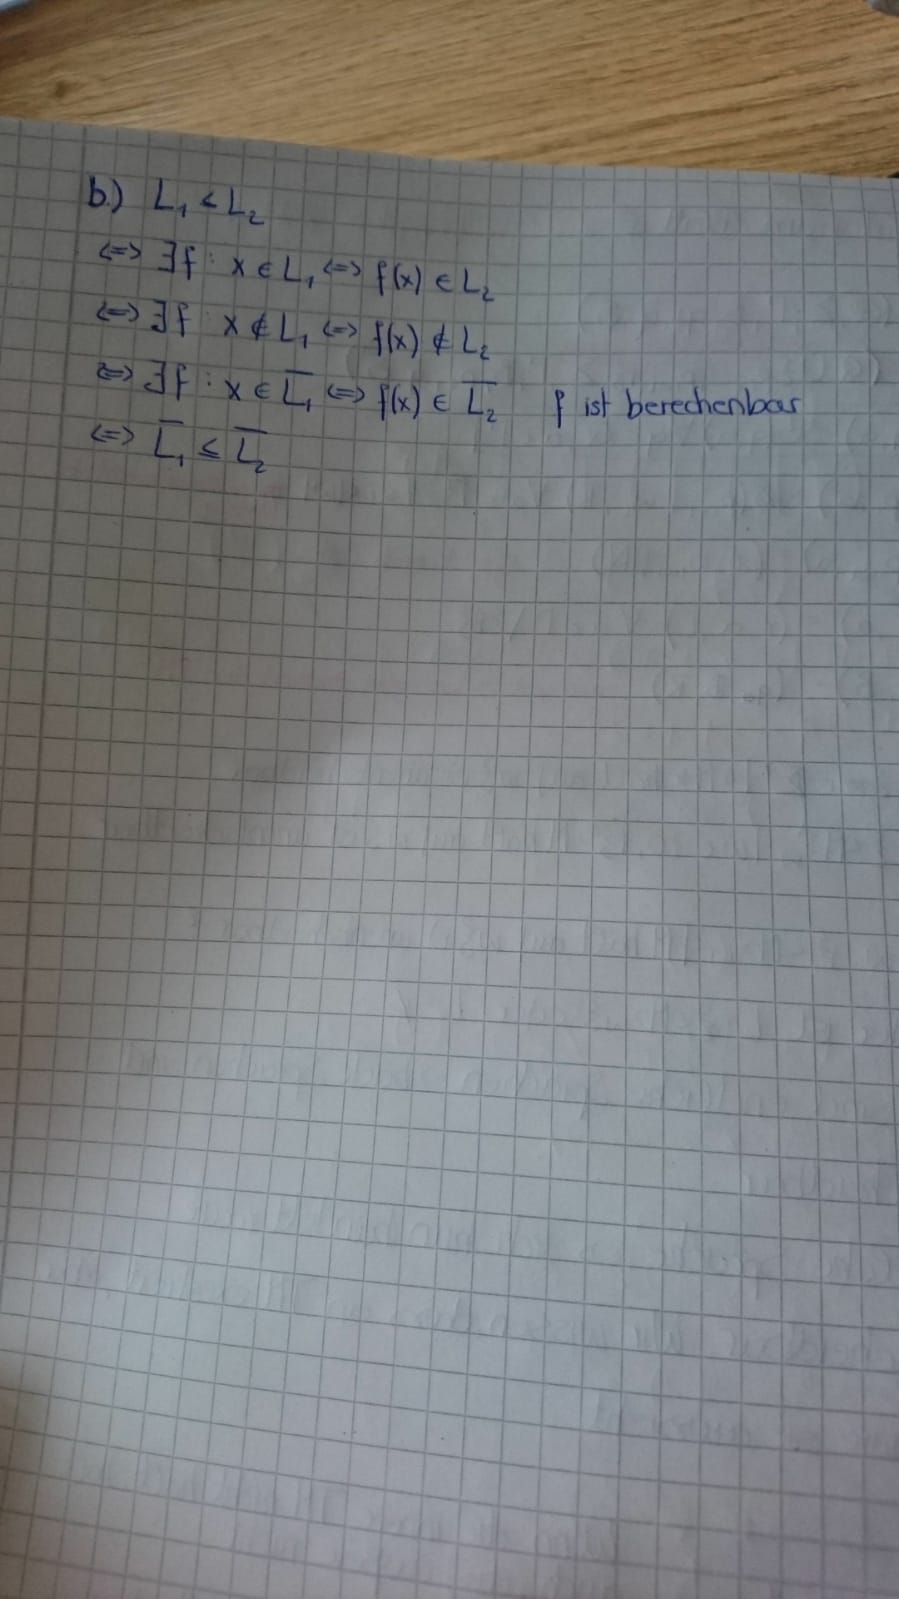 b.) L₁ ≤ L₂
<=> ∃f : x ∈ L₁ <=> f(x) ∈ L₂
<=> ∃f : x ∉ L₁ <=> f(x) ∉ L₂
<=> ∃f : x ∈ L̅₁ <=> f(x) ∈ L̅₂ f ist berechenbar
<=> L̅₁ ≤ L̅₂